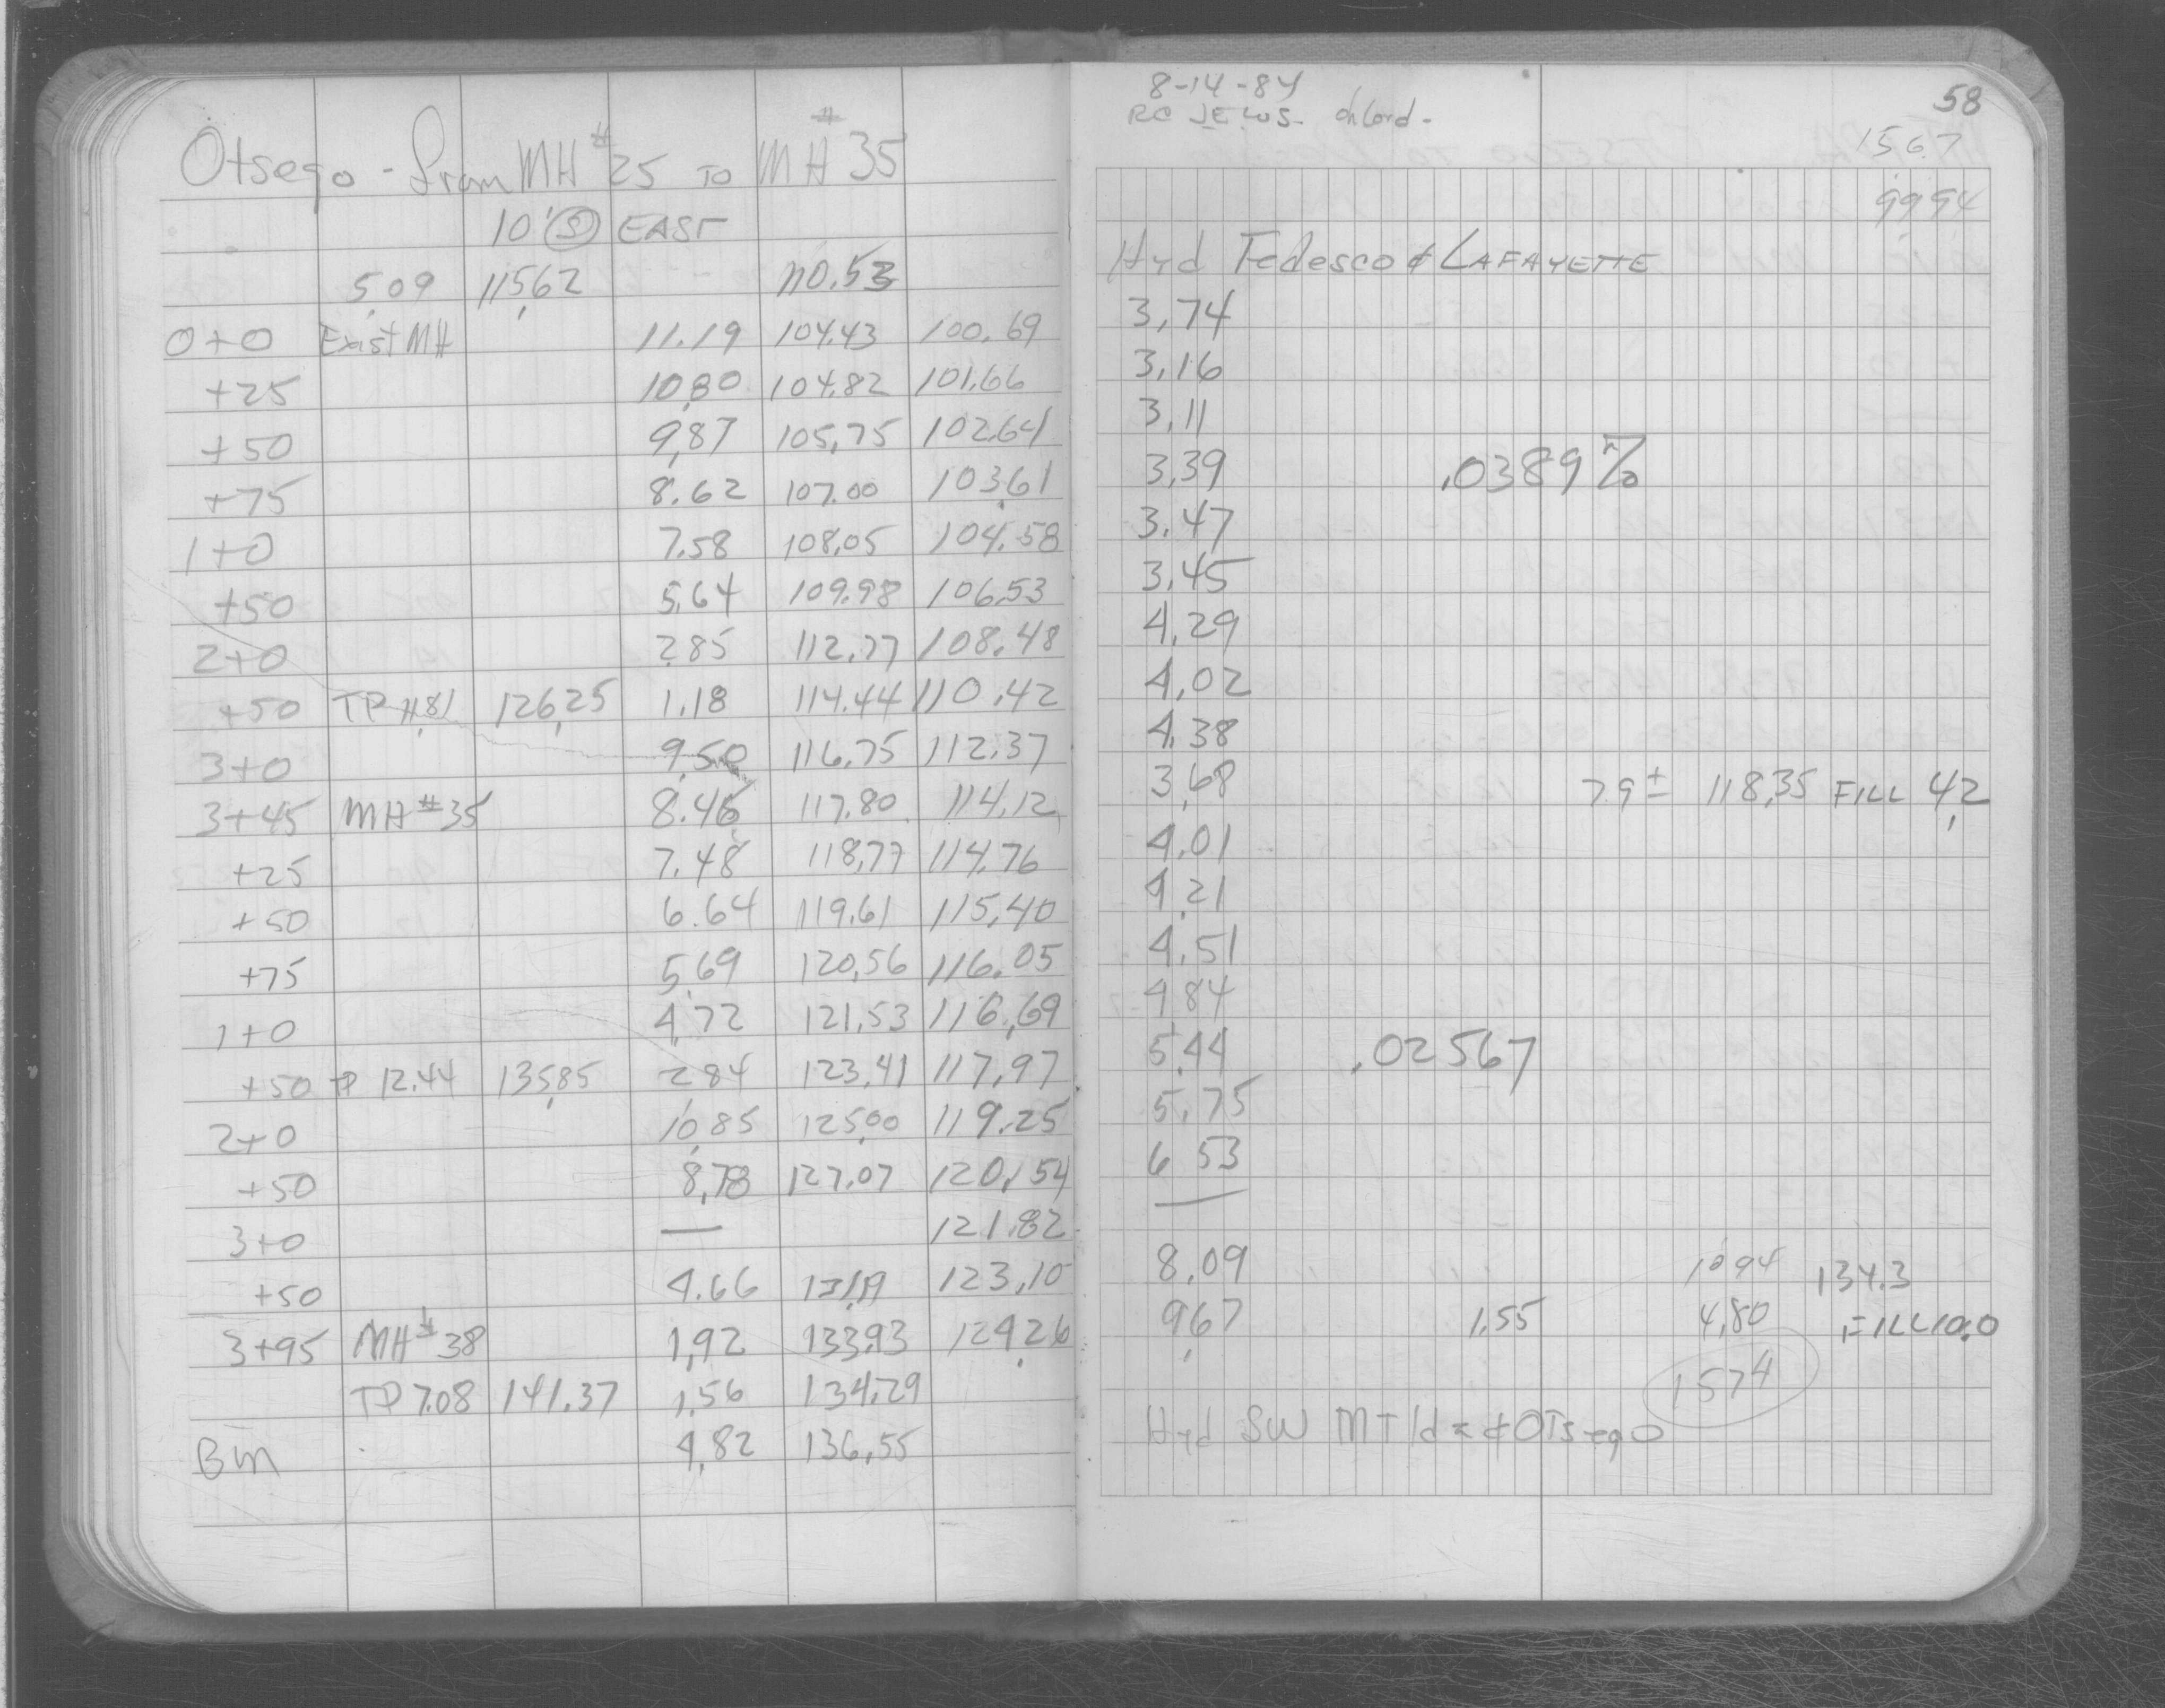 Otsego - from MH #25 TO MH #35
10' (S) EAST
5.09 115.62 110.53
0+0 Exist MH 11.19 104.43 100.69
+25 10.80 104.82 101.66
+50 9.87 105.75 102.64
+75 8.62 107.00 103.61
1+0 7.58 108.05 104.58
+50 5.64 109.98 106.53
2+0 2.85 112.77 108.48
+50 TP 11.81 126.25 1.18 114.44 110.42
3+0 9.50 116.75 112.37
3+45 MH #35 8.46 117.80 114.12
+25 7.48 118.77 114.76
+50 6.64 119.61 115.40
+75 5.69 120.56 116.05
1+0 4.72 121.53 116.69
+50 TP 12.44 135.85 2.84 123.41 117.97
2+0 10.85 125.00 119.25
+50 8.78 127.07 120.54
3+0 — 121.82
+50 4.66 131.19 123.10
3+95 MH #38 1.92 133.93 124.26
TP 7.08 141.37 1.56 134.29
BM 4.82 136.55
8-14-84
RC JE WS
58
15.67
99.94
Hyd Tedesco & LAFAYETTE
3.74
3.16
3.11
3.39 .0389%
3.47
3.45
4.29
4.02
4.38
3.68 7.9± 118.35 FILL 4.2
4.01
4.21
4.51
4.84
5.44 .02567
5.75
6.53
—
8.09 10.94 134.3
9.67 1.55 4.80 FILL 10.0
15.74
Hyd SW & OTsego